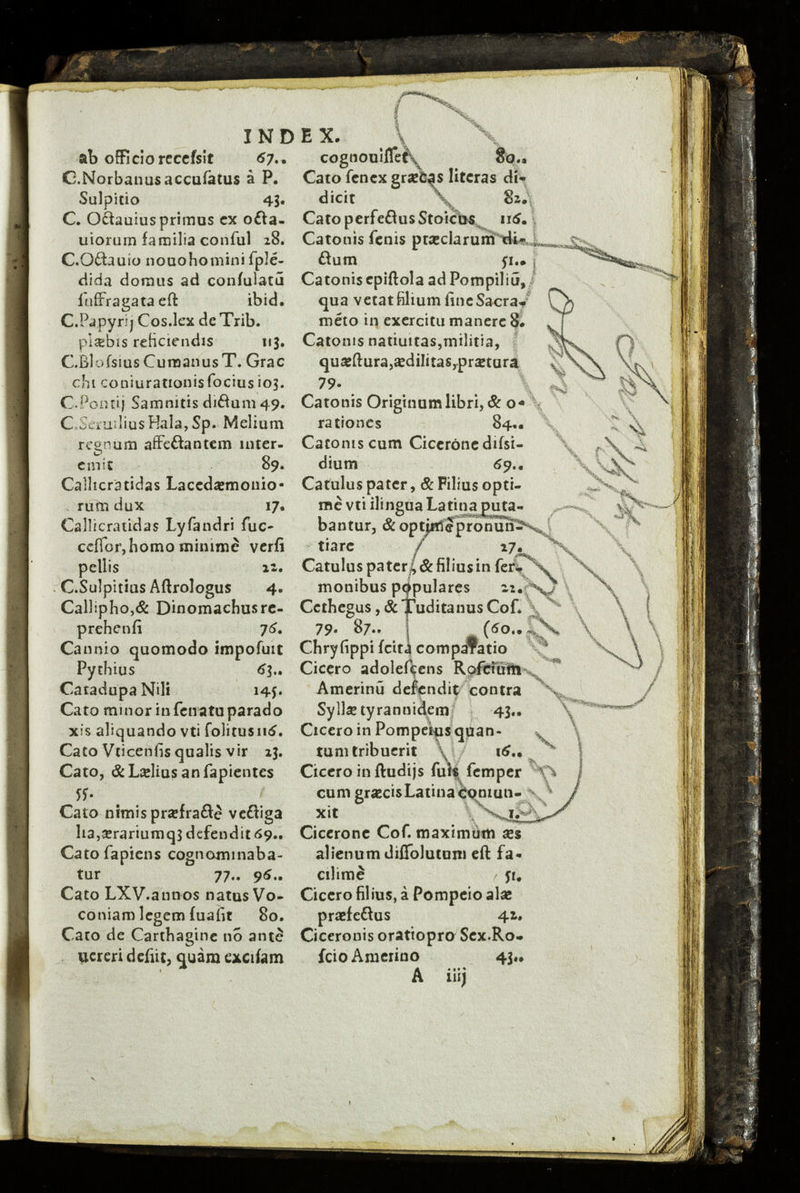 INDEX.
ab officio recesſit 67..
C.Norbanus accuſatus à P.
Sulpitio 43.
C. Octauius primus ex octa-
uiorum familia conſul 28.
C.Octauio nouo homini ſplē-
dida domus ad conſulatū
ſuffragata eſt ibid.
C.Papyrij Cos.lex de Trib.
plæbis reficiendis 113.
C.Bloſsius Cumanus T. Grac
chi coniurationis ſocius 103.
C.Pontij Samnitis dictum 49.
C.Seruilius Hala, Sp. Melium
regnum affectantem inter-
emit 89.
Callicratidas Lacedæmonio-
rum dux 17.
Callicratidas Lyſandri ſuc-
ceſſor, homo minimè verſi
pellis 22.
C.Sulpitius Aſtrologus 4.
Callipho,& Dinomachus re-
prehenſi 76.
Cannio quomodo impoſuit
Pythius 63..
Catadupa Nili 145.
Cato minor in ſenatu parado
xis aliquando vti ſolitus 116.
Cato Vticenſis qualis vir 23.
Cato, & Lælius an ſapientes
55.
Cato nimis præfractè vectiga
lia,ærariumq3 defendit 69..
Cato ſapiens cognominaba-
tur 77.. 96..
Cato LXV.annos natus Vo-
coniam legem ſuaſit 80.
Cato de Carthagine nō antè
uereri deſiit, quàm exciſam
cognouiſſet 80..
Cato ſenex græcas literas di-
dicit 82.
Cato perfectus Stoicus 116.
Catonis ſenis præclarum di-
ctum 51..
Catonis epiſtola ad Pompiliū,
qua vetat filium ſine Sacra-
mēto in exercitu manere 8.
Catonis natiuitas,militia,
quæſtura,ædilitas,prætura
79.
Catonis Originum libri, & o-
rationes 84..
Catonis cum Cicerône diſsi-
dium 69..
Catulus pater, & Filius opti-
mè vti ilingua Latina puta-
bantur, & optimè pronun-
tiare 27.
Catulus pater, & filius in ſer-
monibus populares 22.
Cethegus, & Tuditanus Coſ.
79. 87.. (60..
Chryſippi ſcita comparatio
Cicero adoleſcens Roſcium
Amerinū defendit contra
Syllæ tyrannidem 43..
Cicero in Pompeius quan-
tum tribuerit 16..
Cicero in ſtudijs ſuis ſemper
cum græcis Latina coniun-
xit 1.
Cicerone Coſ. maximum æs
alienum diſſolutum eſt fa-
cilimè 51.
Cicero filius, à Pompeio alæ
præfectus 42.
Ciceronis oratio pro Sex.Ro-
ſcio Amerino 43..
A iiij